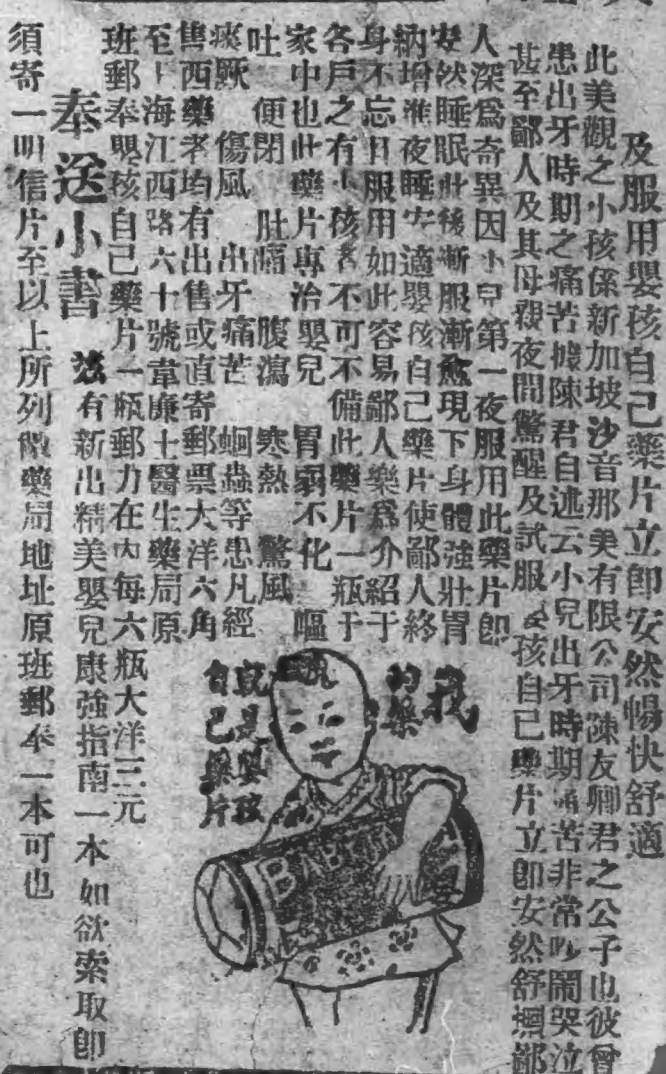 及服用嬰孩自己藥片立卽安然暢快舒適
此美觀之小孩係新加坡沙音那美有限公司陳友卿君之公子也彼曾
患出牙時期之痛苦據陳君自述云小兒出牙時期痛苦非常吵鬧哭泣
甚至鄙人及其母親夜間驚醒及試服嬰孩自己藥片立卽安然舒暢鄙
人深爲奇異因小兒第一夜服用此藥片卽
安然睡眠此後漸服漸愈現下身體強壯胃
納增進夜睡安適嬰孩自己藥片使鄙人終
身不忘日服用如此容易鄙人樂爲介紹于
各戶之有小孩者不可不備此藥片一瓶于
家中也此藥片專治嬰兒 胃弱不化 嘔
吐 便閉 肚痛 腹瀉 寒熱 驚風
痰厥 傷風 出牙痛苦 蛔蟲等患凡經
售西藥者均有出售或直寄郵票大洋六角
至上海江西路六十號韋廉士醫生藥局原
班郵奉嬰孩自己藥片一瓶郵力在內每六瓶大洋三元
奉送小書 茲有新出精美嬰兒康強指南一本如欲索取卽
須寄一明信片至以上所列敝藥局地址原班郵奉一本可也
我
的藥
就是嬰孩
自己藥片